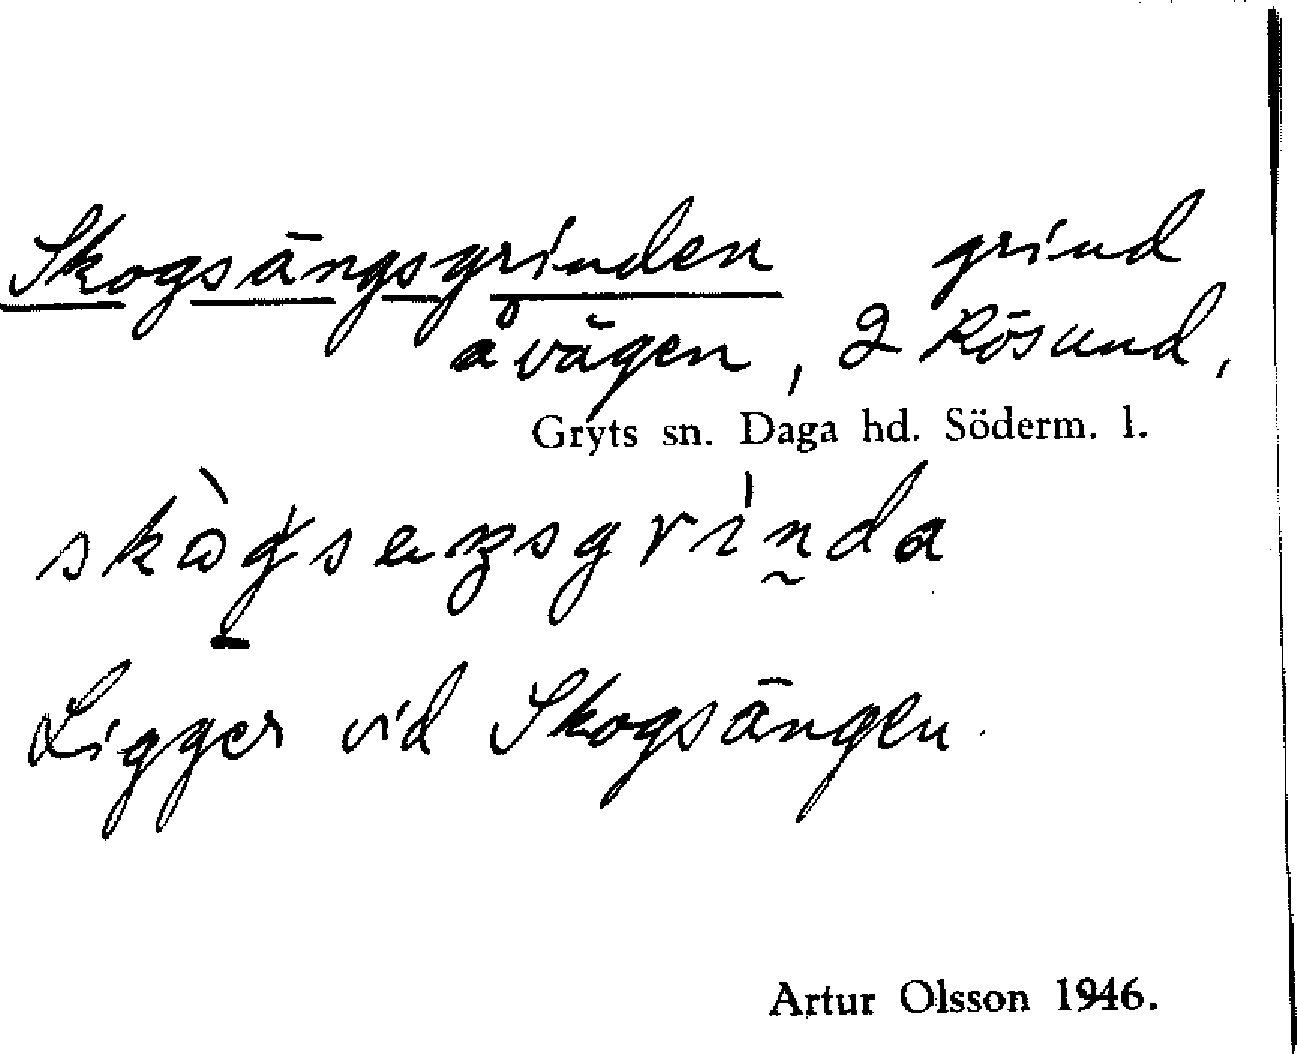 Skogsängsgrinden grind
å vägen, 2 Rösund,
Gryts sn. Daga hd. Söderm. l.
Ligger vid Skogsängen.
Artur Olsson 1946.